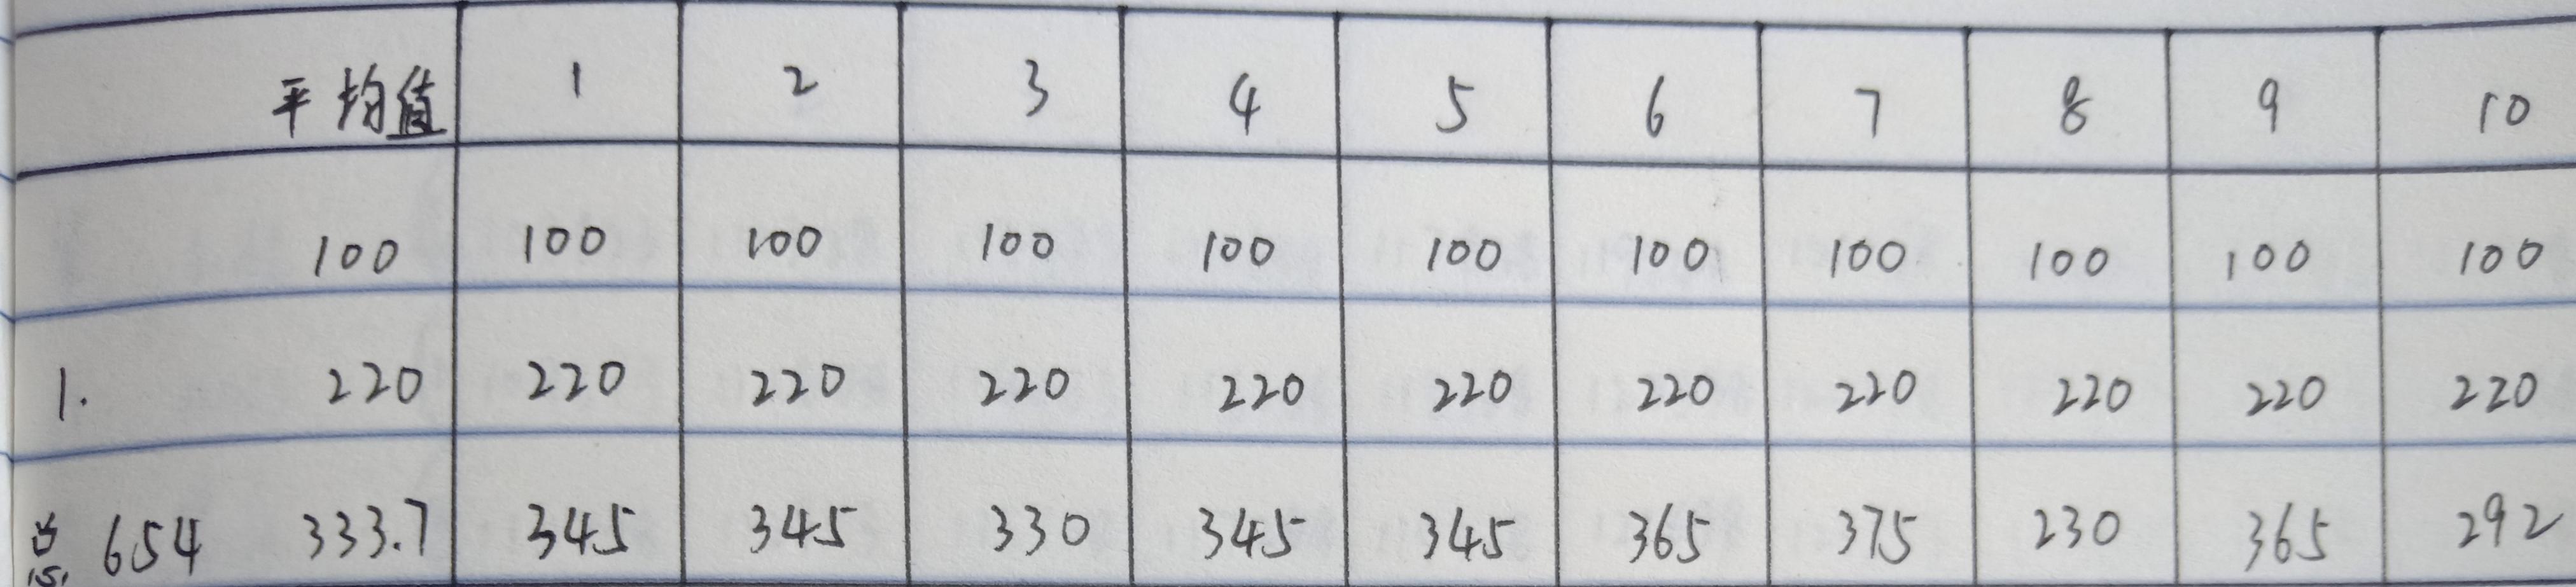 平均值 1 2 3 4 5 6 7 8 9 10
100 100 100 100 100 100 100 100 100 100 100
1. 220 220 220 220 220 220 220 220 220 220 220
总 654 333.7 345 345 330 345 345 365 375 230 365 292